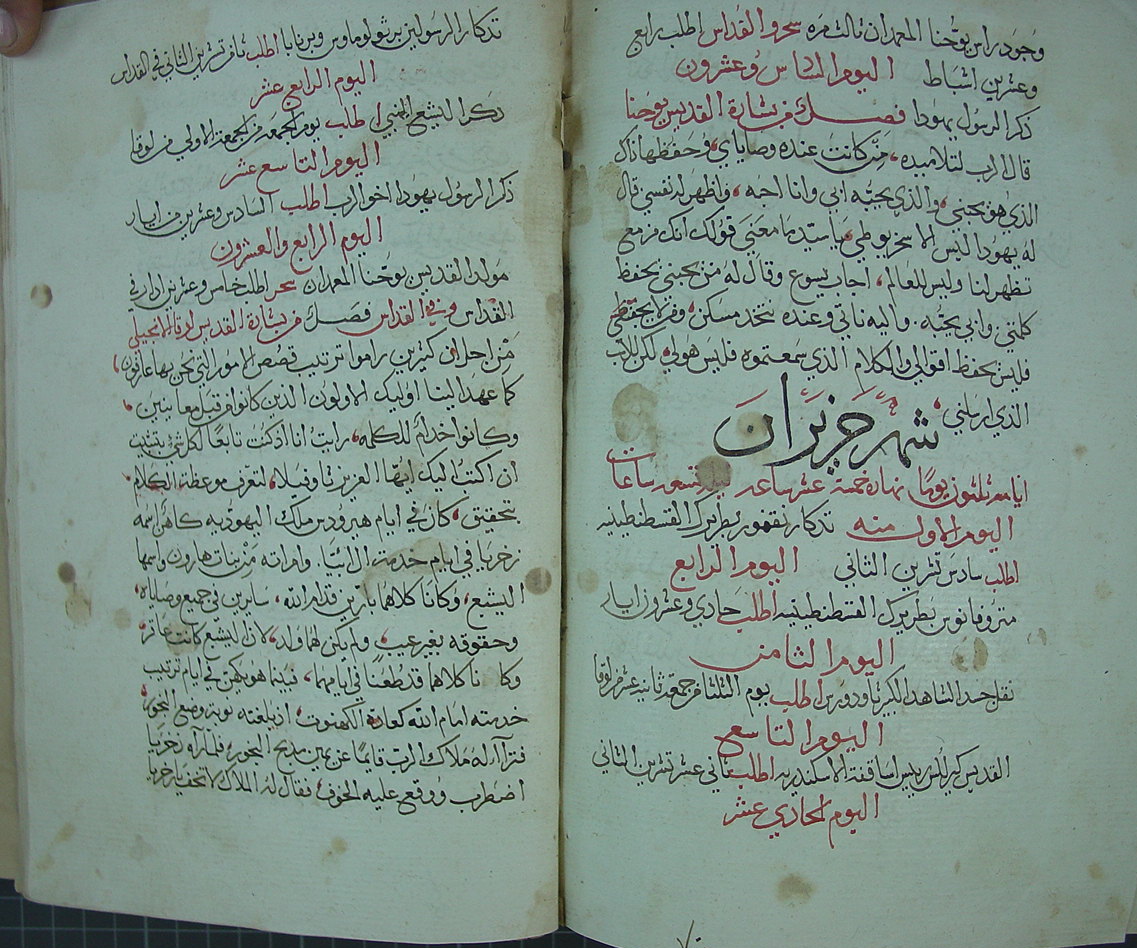 وجود راس يوحنا المعمدان ثالث مره سحر والقداس اطلب رابع
وعشرين اشباط اليوم السادس وعشرون
ذكر الرسول يهودا فصل من بشارة القديس يوحنا
قال الرب لتلاميده، من كانت عنده وصاياي وحفظها ذاك
الذي هو يحبني، والذي يحبني يحبه ابي وانا احبه، واظهر له نفسي قال
له يهودا ليس الاسخريوطي، يا سيد ما معنى قولك انك مزمع
تظهر لنا وليس للعالم، اجاب يسوع وقال له من يحبني يحفظ
كلمتي وابي يحبه. واليه ناتي وعنده نتخد مسكن، ومن لا يحفظني
فليس يحفظ اقوالي والكلام الذي سمعتموه فليس هو لي، لكن للاب
الذي ارسلني،
شهر حزيران
ايامه ثلثون يومًا نهاره خمسة عشر ساعه ليله تسعه ساعات
اليوم الاول منه تدكار نقفور بطريرك القسطنطينيه
اطلب سادس تشرين الثاني اليوم الرابع
متروفانوس بطريرك القسطنطينيه اطلب حادي وعشرون ايار
اليوم الثامن
نقل جسد الشاهد الكبير تاودورس اطلب يوم الثلثا من جمعه ثانيه عشر من لوقا
اليوم التاسع
القديس كيرللس رييس اساقفة الاسكندريه اطلب ثاني عشر تشرين الثاني
اليوم الحادي عشر
تدكار الرسولين برثولوماوس وبرنابا اطلب ثامن تشرين الثاني في القداس
اليوم الرابع عشر
ذكر اليشع النبي اطلب يوم الجمعه من الجمعة الاولي من لوقا
اليوم التاسع عشر
ذكر الرسول يهودا اخو الرب اطلب السادس وعشرين من ايار
اليوم الرابع والعشرون
مولد القديس يوحنا المعمدان سحر اطلب خامس وعشرين ادار في
القداس وفي القداس فصل من بشارة القديس لوقا الانجيلي
من اجل ان كثيرين راموا ترتيب قصص الامور التي نحن بها عارفون
كما عهد الينا اوليك الاولون الذين كانوا من قبل معاينين
وكانوا خدام للكلمه، رايت انا اذ كنت تابعًا لكل شي بتثبت
ان اكتب اليك ايها العزيز تاوفيلا، لتعرف موعظة الكلام
بتحقيق، كان في ايام هيرودس ملك اليهوديه كاهن اسمه
زخريا في ايام خدمت ال ابيا. وامراته من بنات هارون واسمها
اليشبع، وكانا كلاهما بارين قدام الله، سايرين في جميع وصاياه،
وحقوقه بغير عيب، ولم يكن لهما ولد، لان اليشبع كانت عاقر
وكانا كلاهما قد طعنا في ايامهما، فبينما هو يكهن في ايام ترتيب
خدمته امام الله كعادة الكهنوت، اذ بلغته نوبة وضع البخور،
فترآا له ملاك الرب قايمًا عن يمين مدبح البخور، فلما رآه زخريا
اضطرب ووقع عليه الخوف، فقال له الملاك لا تخف يا زخريا